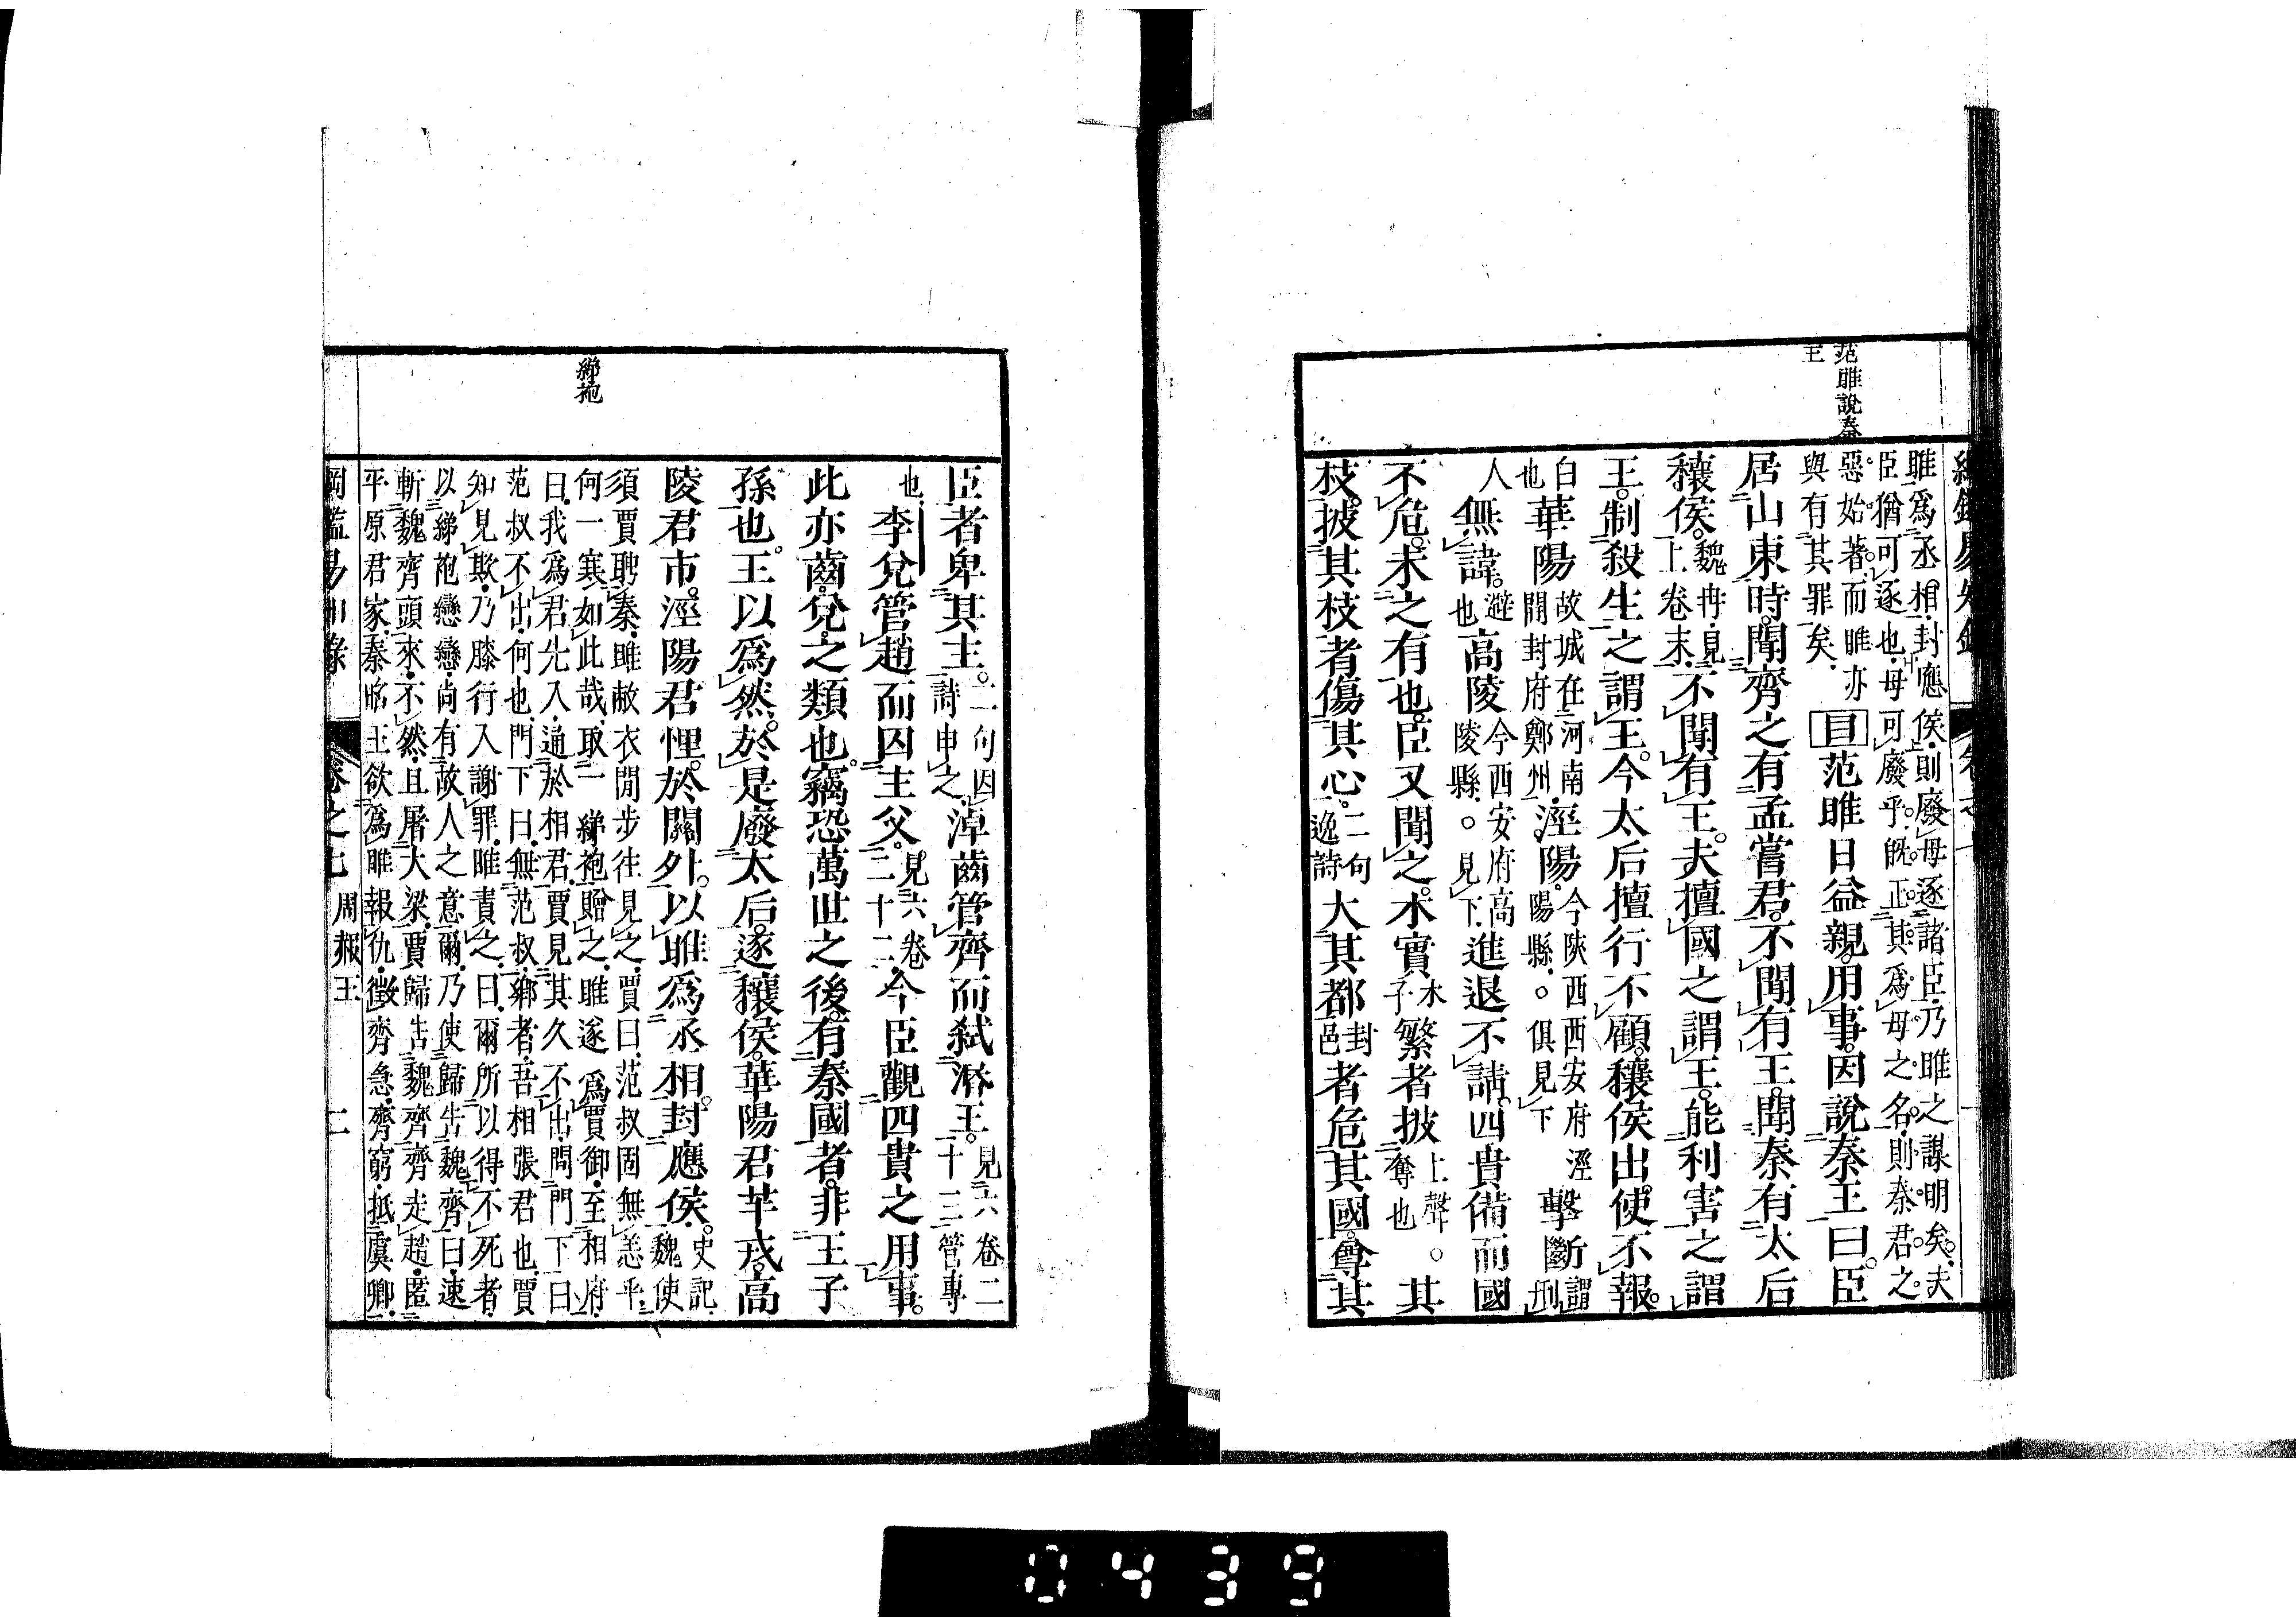 范雎說秦
王
雎爲丞相封應侯則廢母逐諸臣乃雎之謀明矣夫
臣猶可逐也母可廢乎旣正其爲母之名則秦君之
惡始著而雎亦
與有其罪矣
目范雎日益親用事因說秦王曰臣
居山東時聞齊之有孟嘗君不聞有王聞秦有太后
穰侯魏冉見上卷末不聞有王夫擅國之謂王能利害之謂
王制殺生之謂王今太后擅行不顧穰侯出使不報
白也華陽故城在河南開封府鄭州涇陽今陝西西安府涇陽縣俱見下擊斷謂刑
人無諱避也高陵今西安府高陵縣見下進退不請四貴備而國
不危未之有也臣又聞之木實木子繁者披上聲奪也其
枝披其枝者傷其心二句逸詩大其都封邑者危其國尊其
臣者卑其主二句因詩申之淖齒管齊而弑湣王見六卷二十三管專
也李兌管趙而囚主父見六卷二十二今臣觀四貴之用事
此亦齒兌之類也竊恐萬世之後有秦國者非王子
孫也王以爲然於是廢太后逐穰侯華陽君芊戎高
陵君市涇陽君悝於關外以雎爲丞相封應侯史記魏使
須賈聘秦雎敝衣閒步往見之賈曰范叔固無恙乎
何一寒如此哉取一綈袍贈之雎遂爲賈御至相府
曰我爲君先入通於相君賈見其久不出問門下曰
范叔不出何也門下曰無范叔鄉者吾相張君也賈
知見欺乃膝行入謝罪雎責之曰爾所以得不死者
以綈袍戀戀尚有故人之意爾乃使歸告魏齊曰速
斬魏齊頭來不然且屠大梁賈歸告魏齊齊走趙匿
平原君家秦昭王欲爲雎報仇徵齊急齊窮抵虞卿
綈袍
綱鑑易知錄 卷之七 周赧王 二
0439